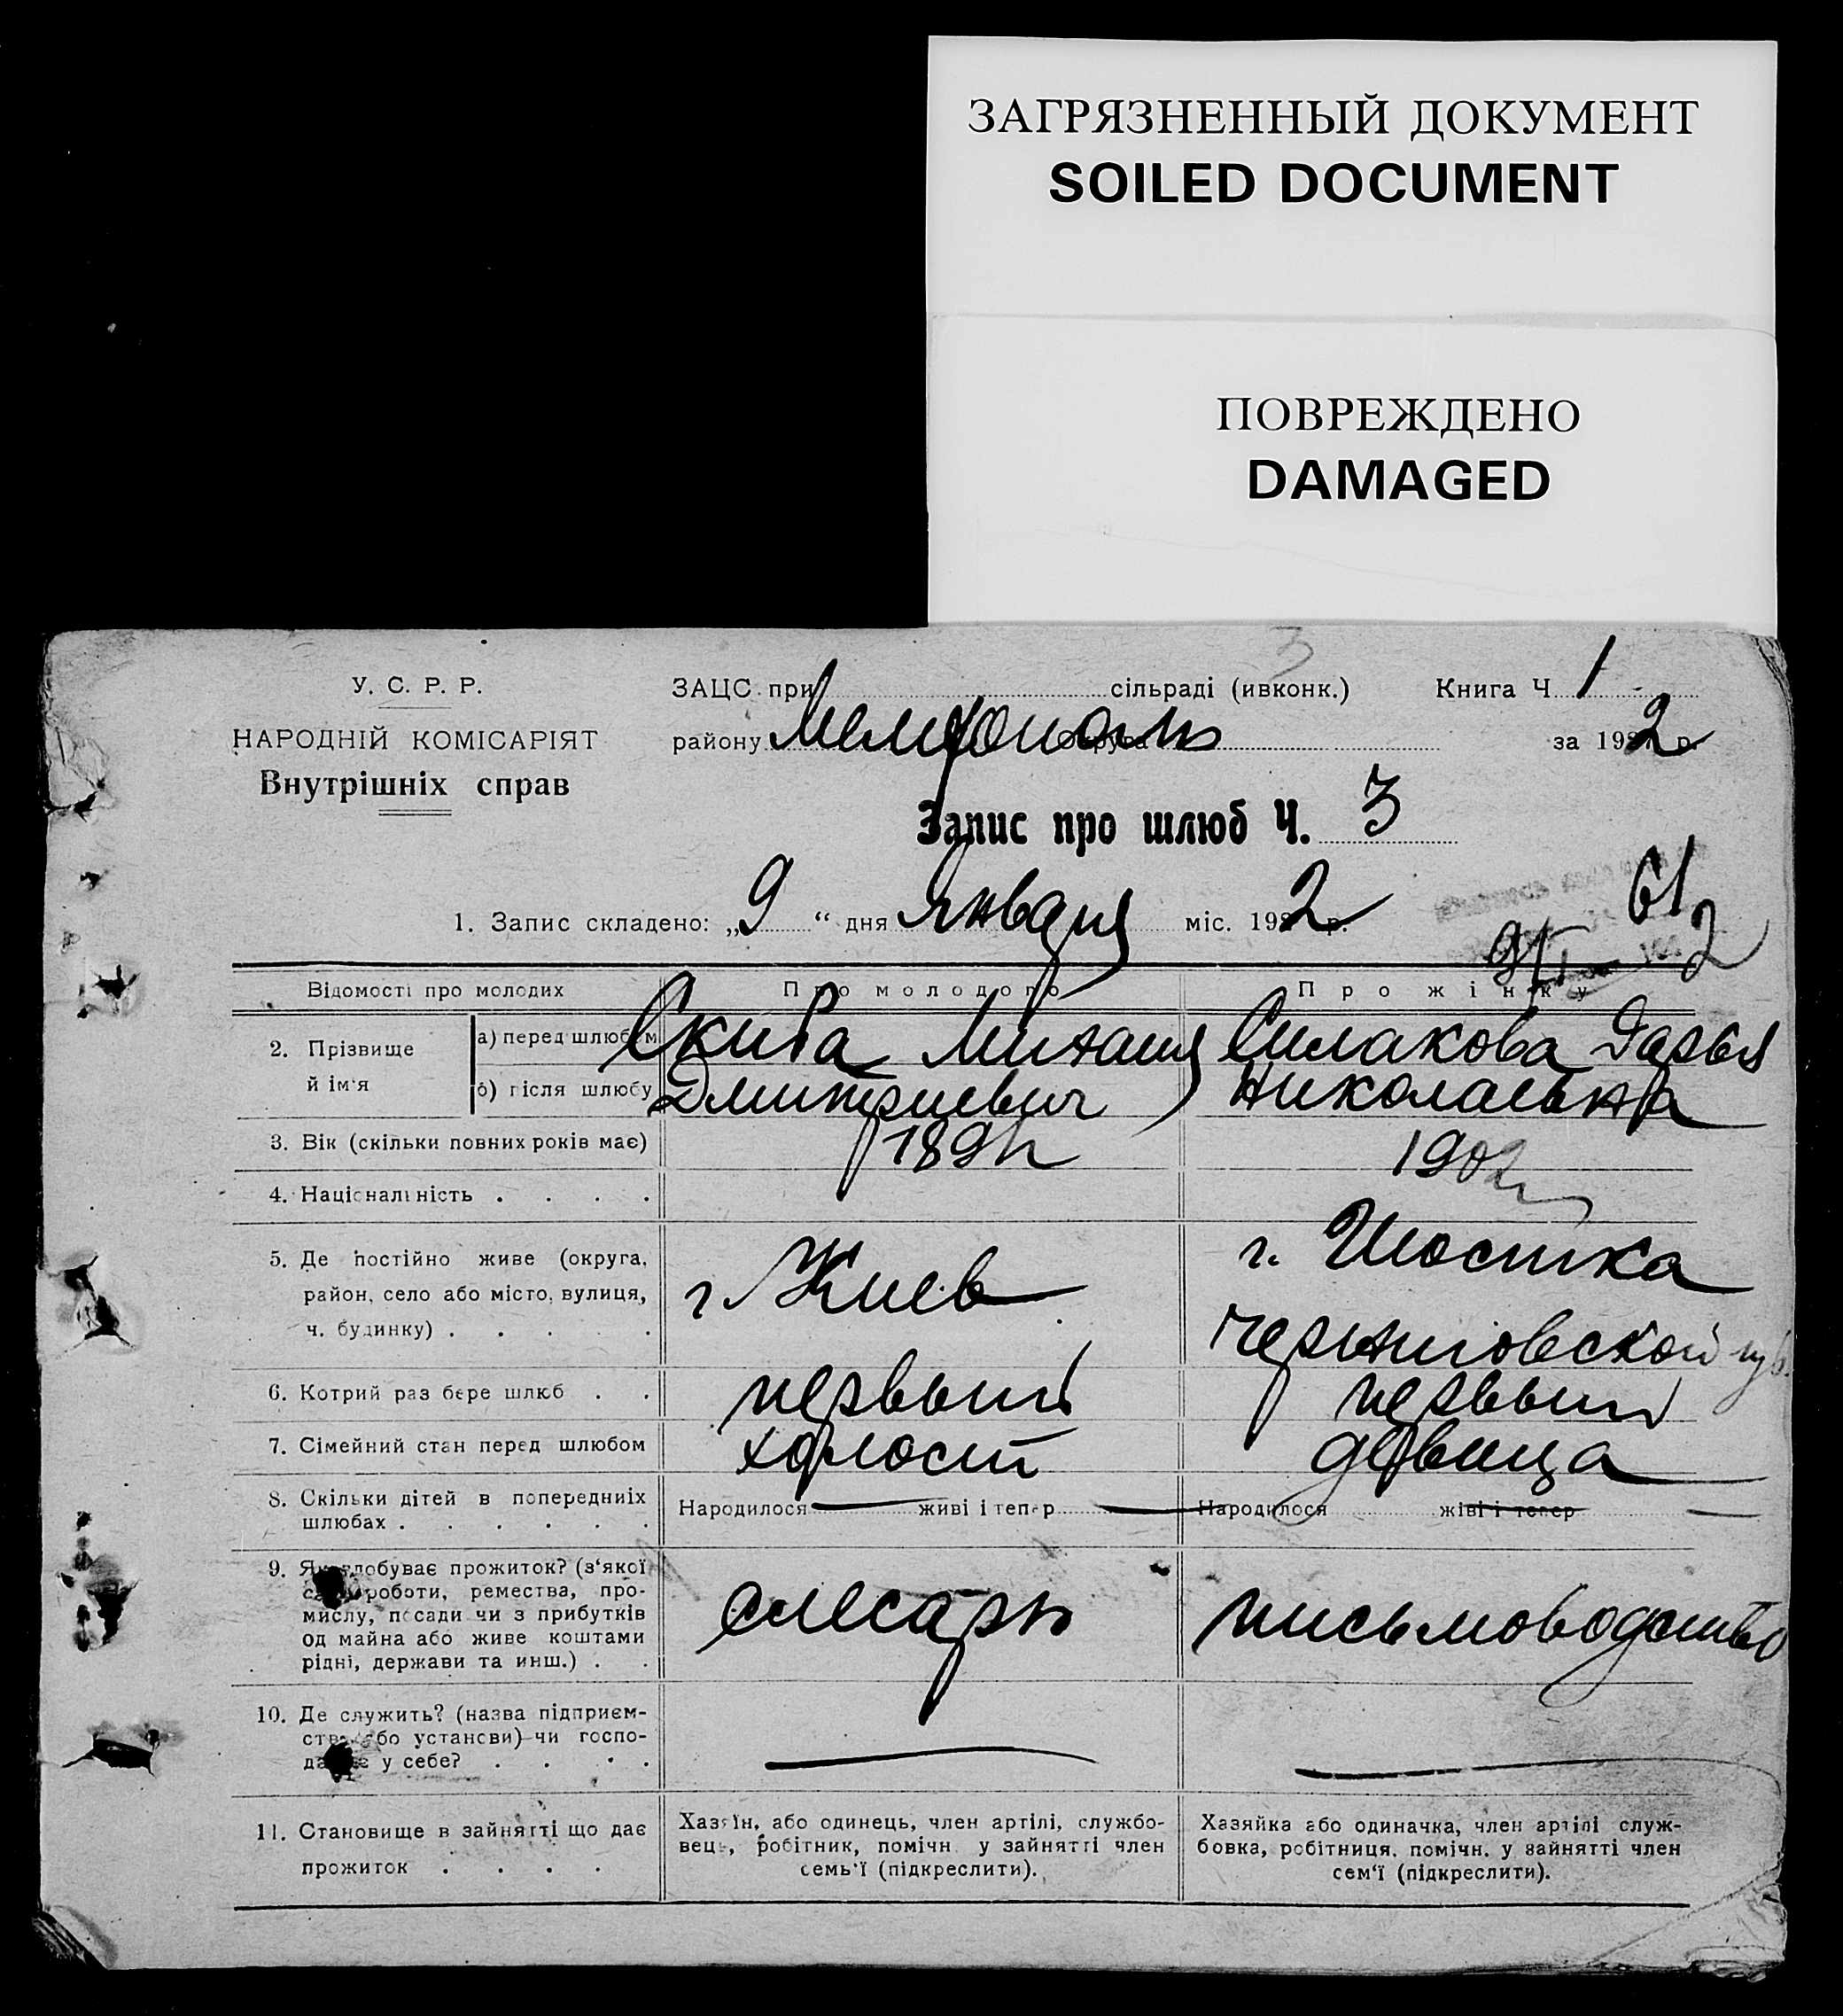 ЗАГРЯЗНЕННЫЙ ДОКУМЕНТ
SOILED DOCUMENT
ПОВРЕЖДЕНО
DAMAGED
3
У. С. Р. Р.
НАРОДНІЙ КОМІСАРІЯТ
Внутрішніх справ
ЗАЦС при сільраді (ивконк.) Книга Ч 1
району Мелитополь округа за 192 2 р.
Запис про шлюб Ч. 3
1. Запис складено: „9“ дня Января міс. 192 2 р.
61
9/I 2
Відомості про молодих Про молодого Про жінку
2. Прізвище й ім'я
а) перед шлюбом Скиба Михаил Силакова Дарья
б) після шлюбу Дмитриевич Николаевна
3. Вік (скільки повних років має) 1902
4. Національність . . . .
5. Де постійно живе (округа, район, село або місто, вулиця, ч. будинку) . . . . .
г. Киев
г. Шостка
Черниговской губ.
6. Котрий раз бере шлюб . . первый первый
7. Сімейний стан перед шлюбом холост девица
8. Скільки дітей в попередніх шлюбах . . . . . .
Народилося живі і тепер Народилося живі і тепер
9. Як здобуває прожиток? (з'якої роботи, ремества, промислу, посади чи з прибутків од майна або живе коштами рідні, держави та инш.) . .
слесарь письмоводство
10. Де служить? (назва підприємства або установи) чи господарює у себе? . . . .
11. Становище в зайнятті що дає прожиток . . . .
Хазяїн, або одинець, член артілі, службовець, робітник, помічн. у зайнятті член семь'ї (підкреслити).
Хазяйка або одиначка, член артілі службовка, робітниця, помічн. у зайнятті член сем'ї (підкреслити).